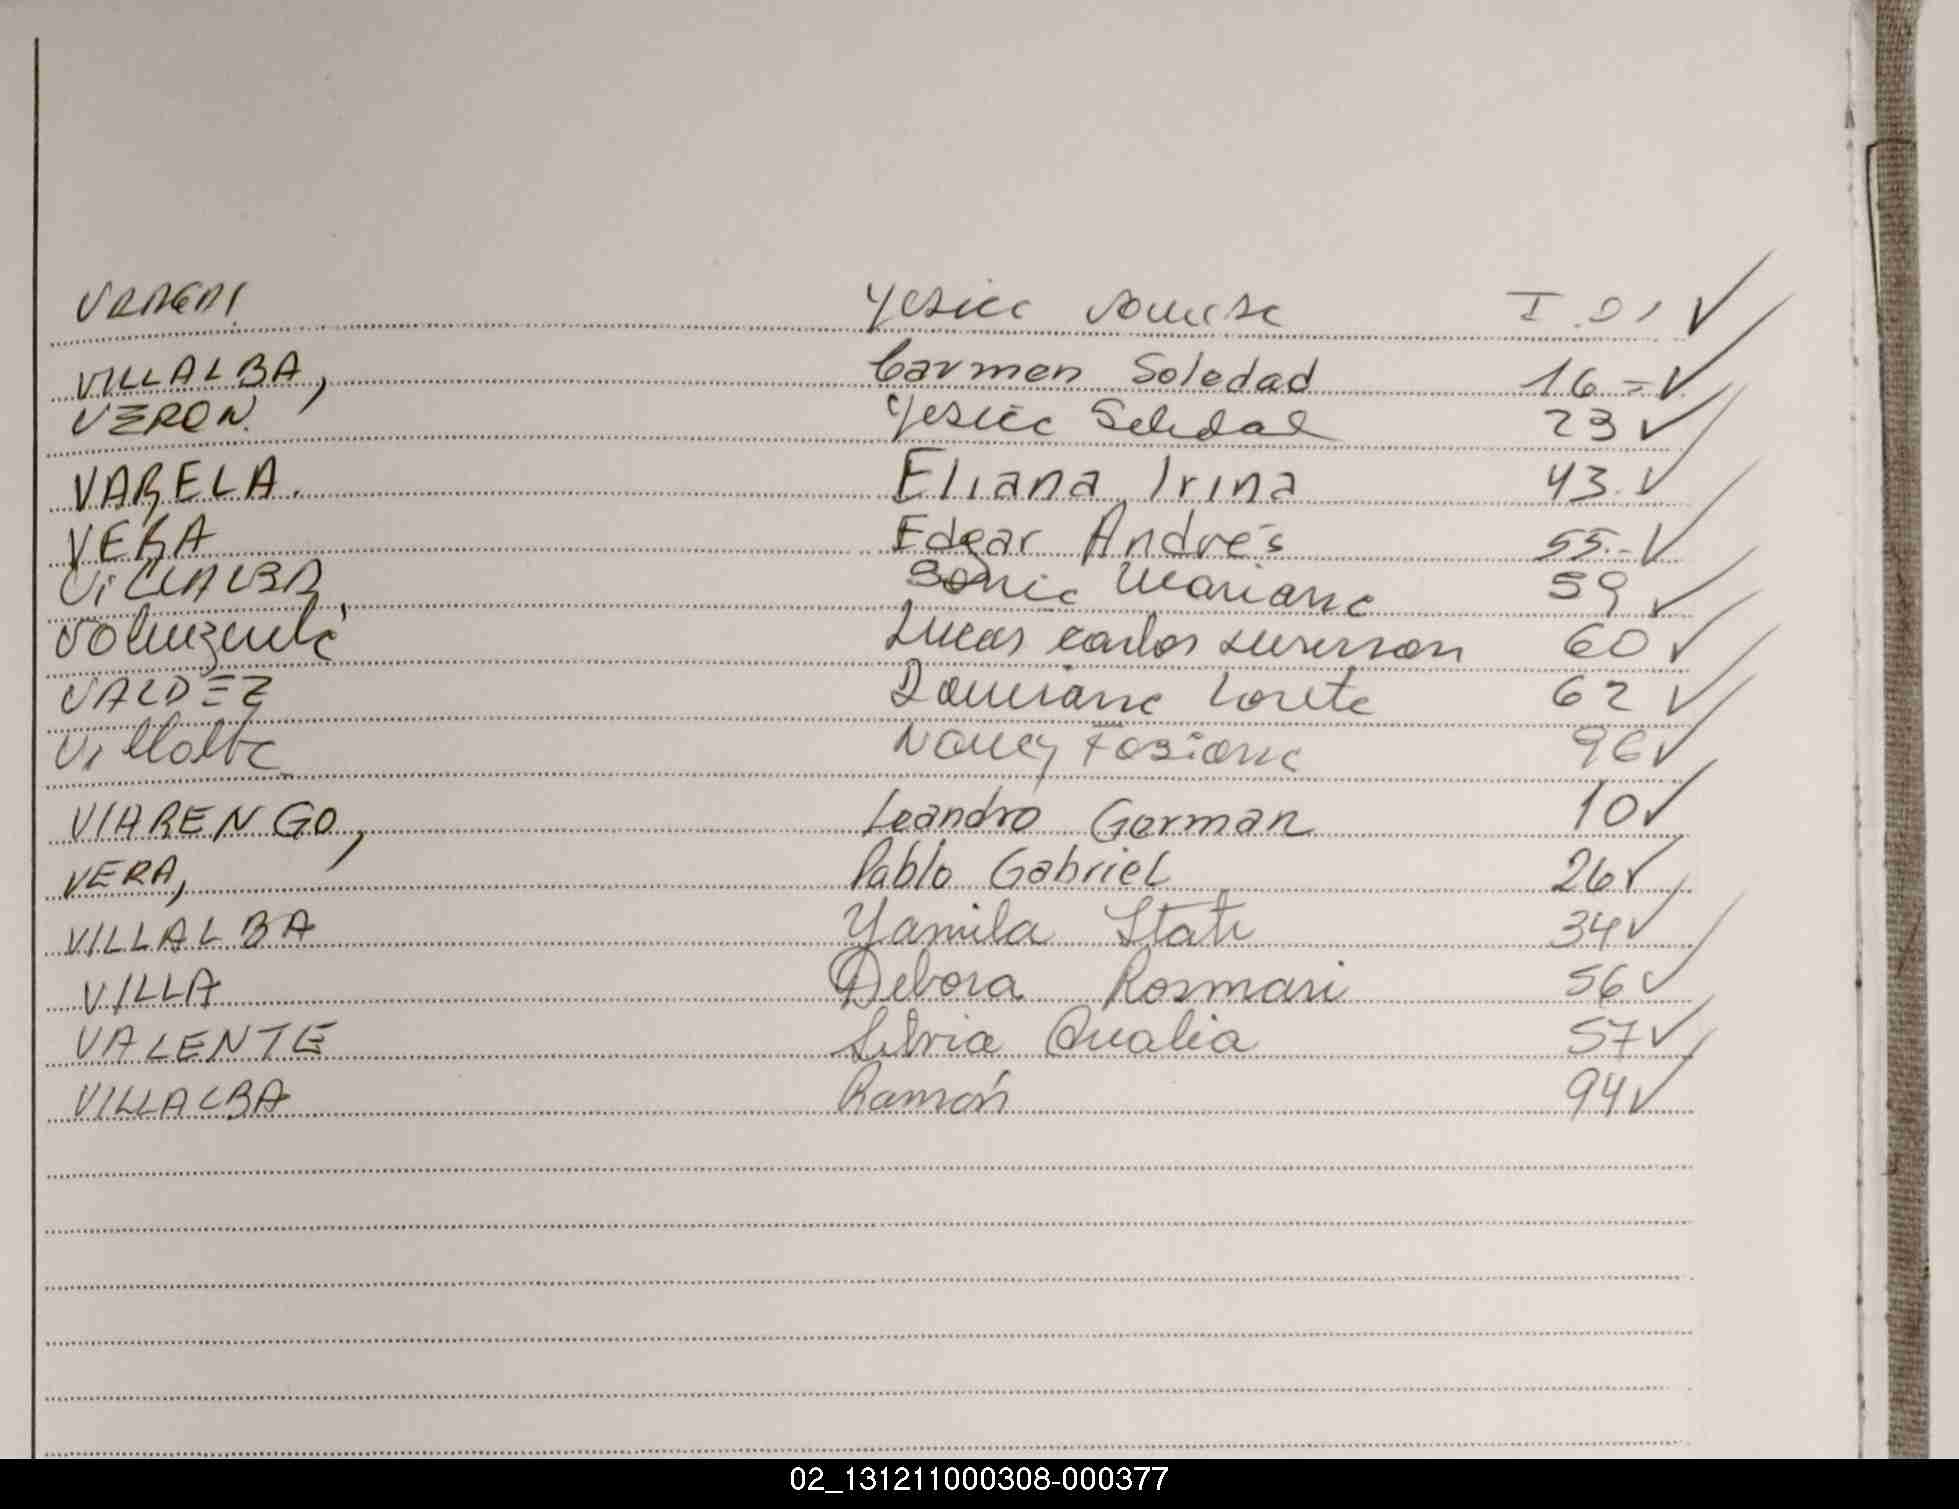 VARGAS Yesica I.D.
VILLALBA, Carmen Soledad 16=
VERON. Yesica Soledad 23
VARELA. Eliana Irina 43.
VERA Edgar Andrés 55.-
VILLALBA, Sonia Mariana 59
Lucas Carlos 60
VALDEZ 62
Villalba Nancy Fabiana 96
VIARENGO, Leandro German 10
VERA, Pablo Gabriel 26
VILLALBA Yamila Itati 34
VILLA Debora Rosmari 56
VALENTE Silvia 57
VILLALBA Ramón 94
02_131211000308-000377